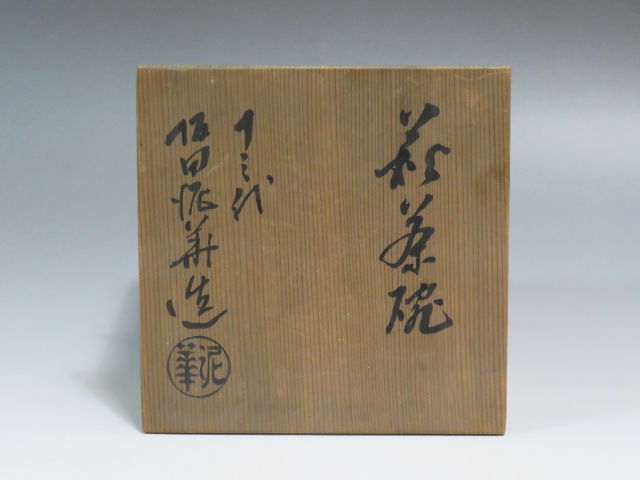 萩茶碗
十三代
坂田泥華造
泥華